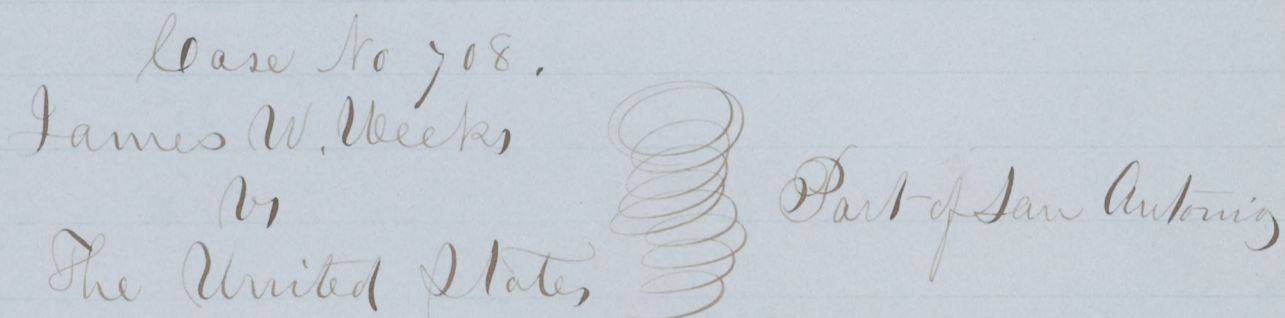 Case No 708.
James W. Weeks
vs
The United States
Part of San Antonio